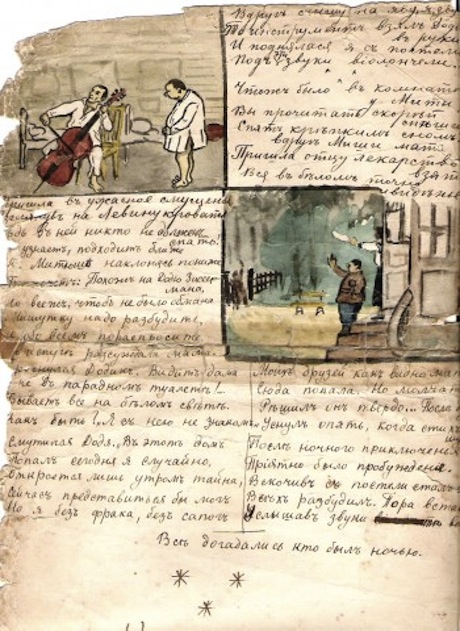 Вдругъ слышу на яву я
То инструментъ взялъ Додя
въ руки
И поднялася я съ постели
Подъ эти звуки віолончели.
Чтожъ было въ комнатѣ
у Мити
Вы прочитать скорѣй
спѣшите
Спятъ крѣпкимъ сномъ
вдругъ Миши мать
Пришла отцу лекарство
взять
Вся въ бѣломъ точно
въ ужасное смущенье
взглянувъ на Левину кровать
въ ней никто не долженъ
спать.
узнаетъ, подходитъ ближе
Къ Митѣ наклонясь пониже
Похожъ на Додю Зиссер
мана,
Но все же, чтобъ не было обмана
Мишутку надо разбудить,
обо всемъ поразспросить
разсуждала мама.
Додикъ. Видитъ дама
не въ парадномъ туалетѣ!..
Бываетъ все на бѣломъ свѣтѣ.
Какъ быть? Я съ нею не знакомъ
Смутился Додя. Въ этотъ домъ
Попалъ сегодня я случайно,
Откроется лишь утромъ тайна,
Сейчасъ представиться бы могъ
Но я безъ фрака, безъ сапогъ
Моихъ друзей какъ видно мать
Сюда попала. Но молчать
Рѣшилъ онъ твердо... Послѣ
Уснулъ опять, когда
Послѣ ночного приключенія
Пріятно было пробужденіе.
Вскочивъ съ постели
Всѣхъ разбудилъ. Пора
Услышавъ звуки
Всѣ догадались кто былъ ночью.